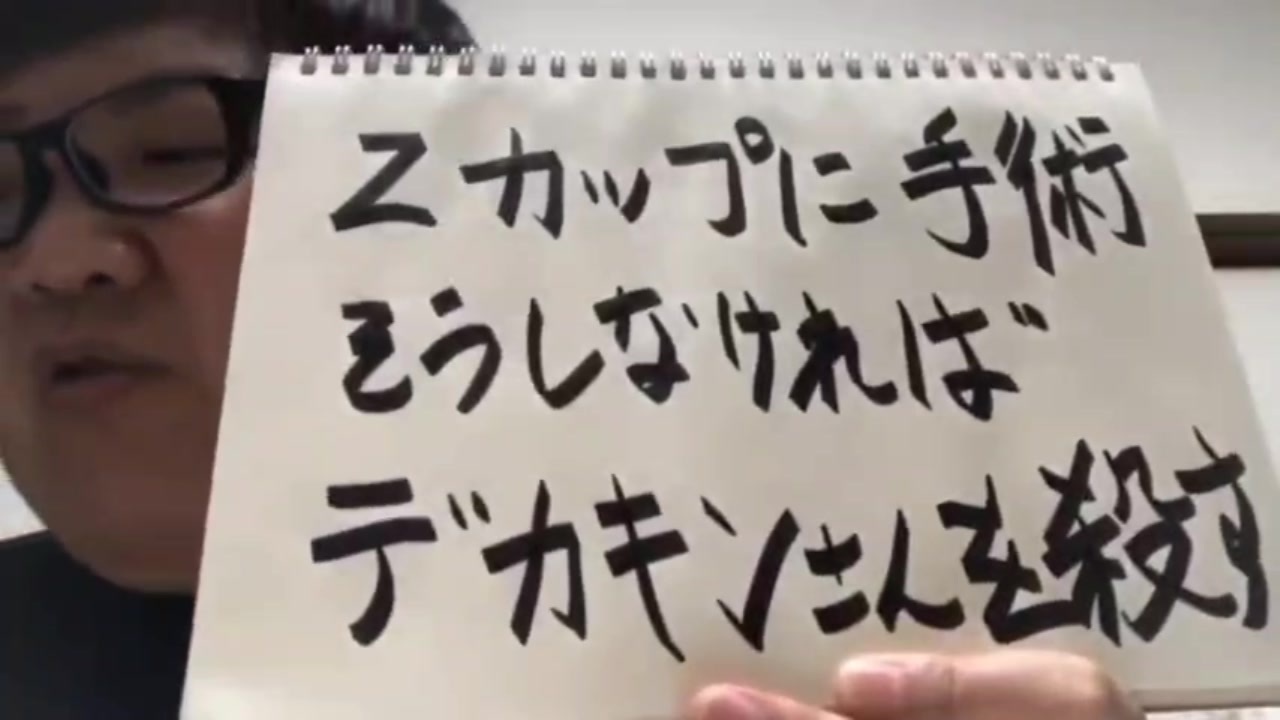 Zカップに手術
そうしなければ
デカキンさんを殺す